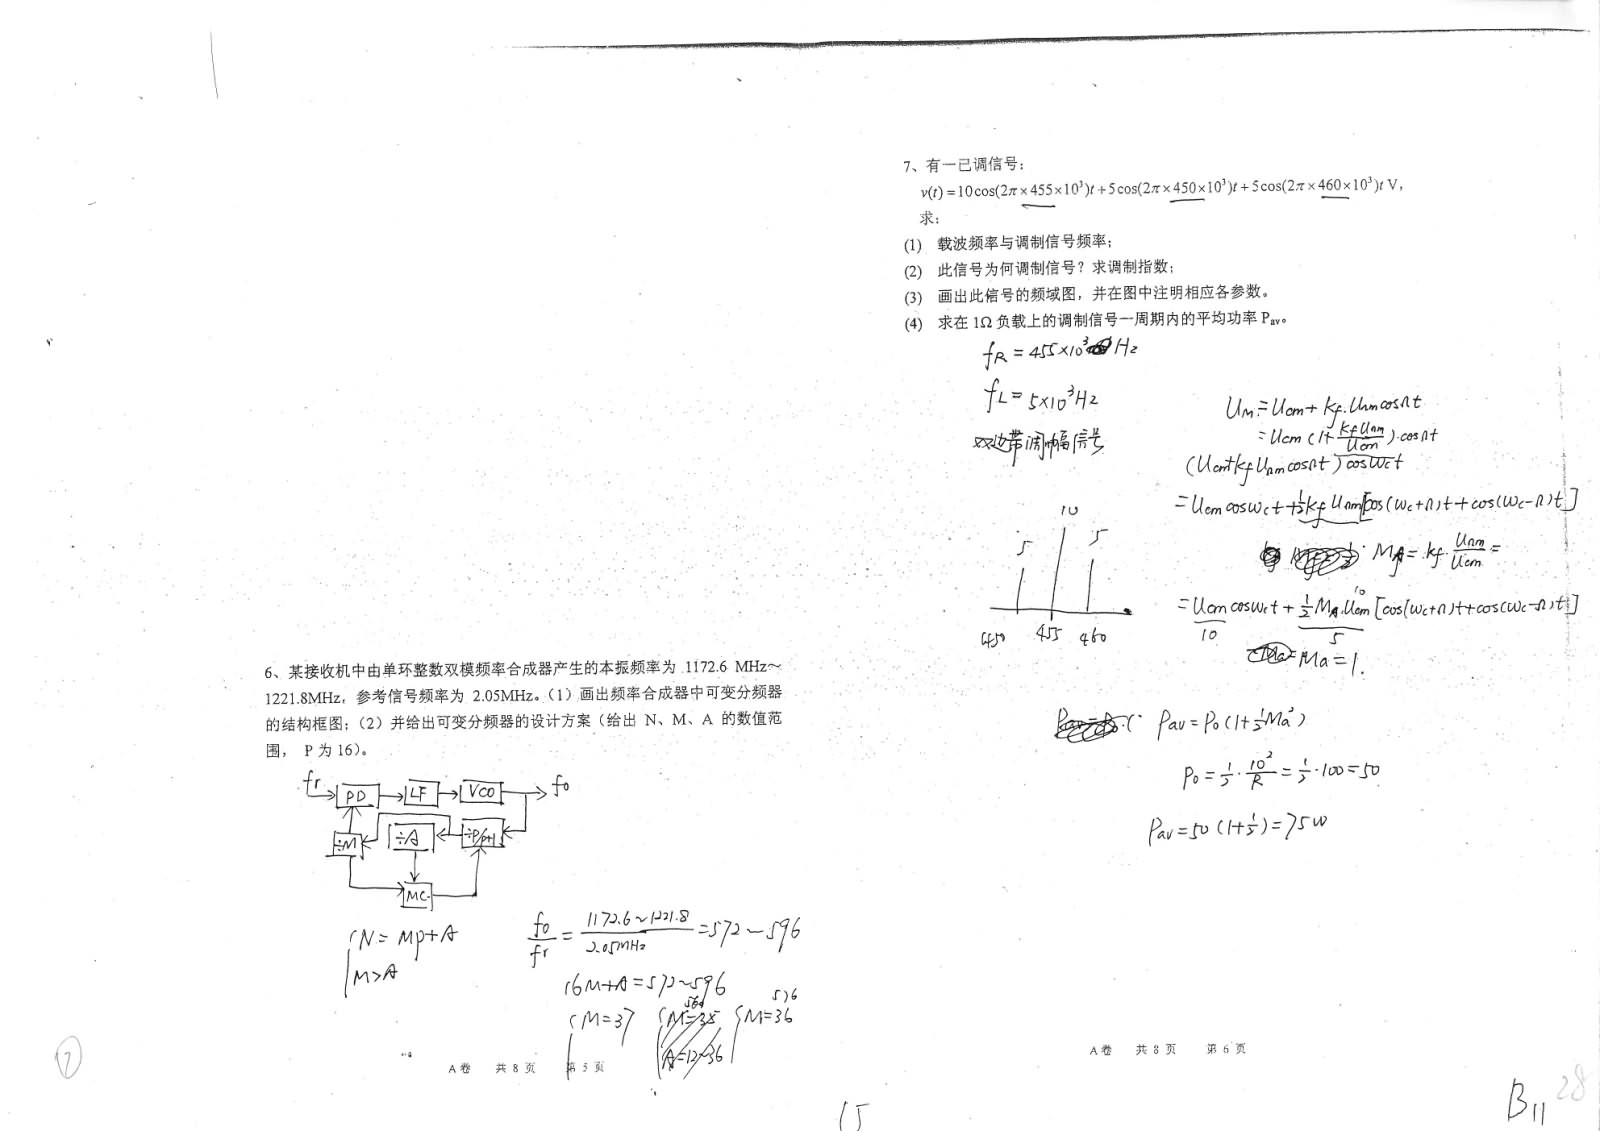 6、某接收机中由单环整数双模频率合成器产生的本振频率为 1172.6 MHz～
1221.8MHz，参考信号频率为 2.05MHz。（1）画出频率合成器中可变分频器
的结构框图；（2）并给出可变分频器的设计方案（给出 N、M、A 的数值范
围， P 为 16）。
fr PD LF VCO fo
÷M ÷A ÷P/P+1
MC
N = MP+A
M>A
fo/fr = 1172.6~1221.8/2.05MHz = 572~596
16M+A=572~596
M=37
564
M=35
A=12~36
576
M=36
A卷 共 8 页 第 5 页
7
7、有一已调信号：
v(t) = 10cos(2π×455×10³)t + 5cos(2π×450×10³)t + 5cos(2π×460×10³)t V，
求：
(1) 载波频率与调制信号频率；
(2) 此信号为何调制信号？求调制指数；
(3) 画出此信号的频域图，并在图中注明相应各参数。
(4) 求在 1Ω 负载上的调制信号一周期内的平均功率 Pav。
fR = 455×10³ Hz
fL = 5×10³Hz
双边带调幅信号
UM = Ucm + kf·UΩmcosΩt
= Ucm (1+ kfUΩm/Ucm)·cosΩt
(Ucm+kfUΩmcosΩt) cosWct
= Ucm cosWct + ½kf UΩm[cos(Wc+Ω)t + cos(Wc-Ω)t]
MA = kf· UΩm/Ucm =
10
= Ucm cosWct + ½MA Ucm [cos(Wc+Ω)t+cos(Wc-Ω)t]
10 5
Ma=1.
10
5 5
450 455 460
Pav = Po(1+½Ma²)
Po = ½·10²/R = ½·100=50
Pav=50(1+½)=75W
A卷 共 8 页 第 6 页
15
B11 28